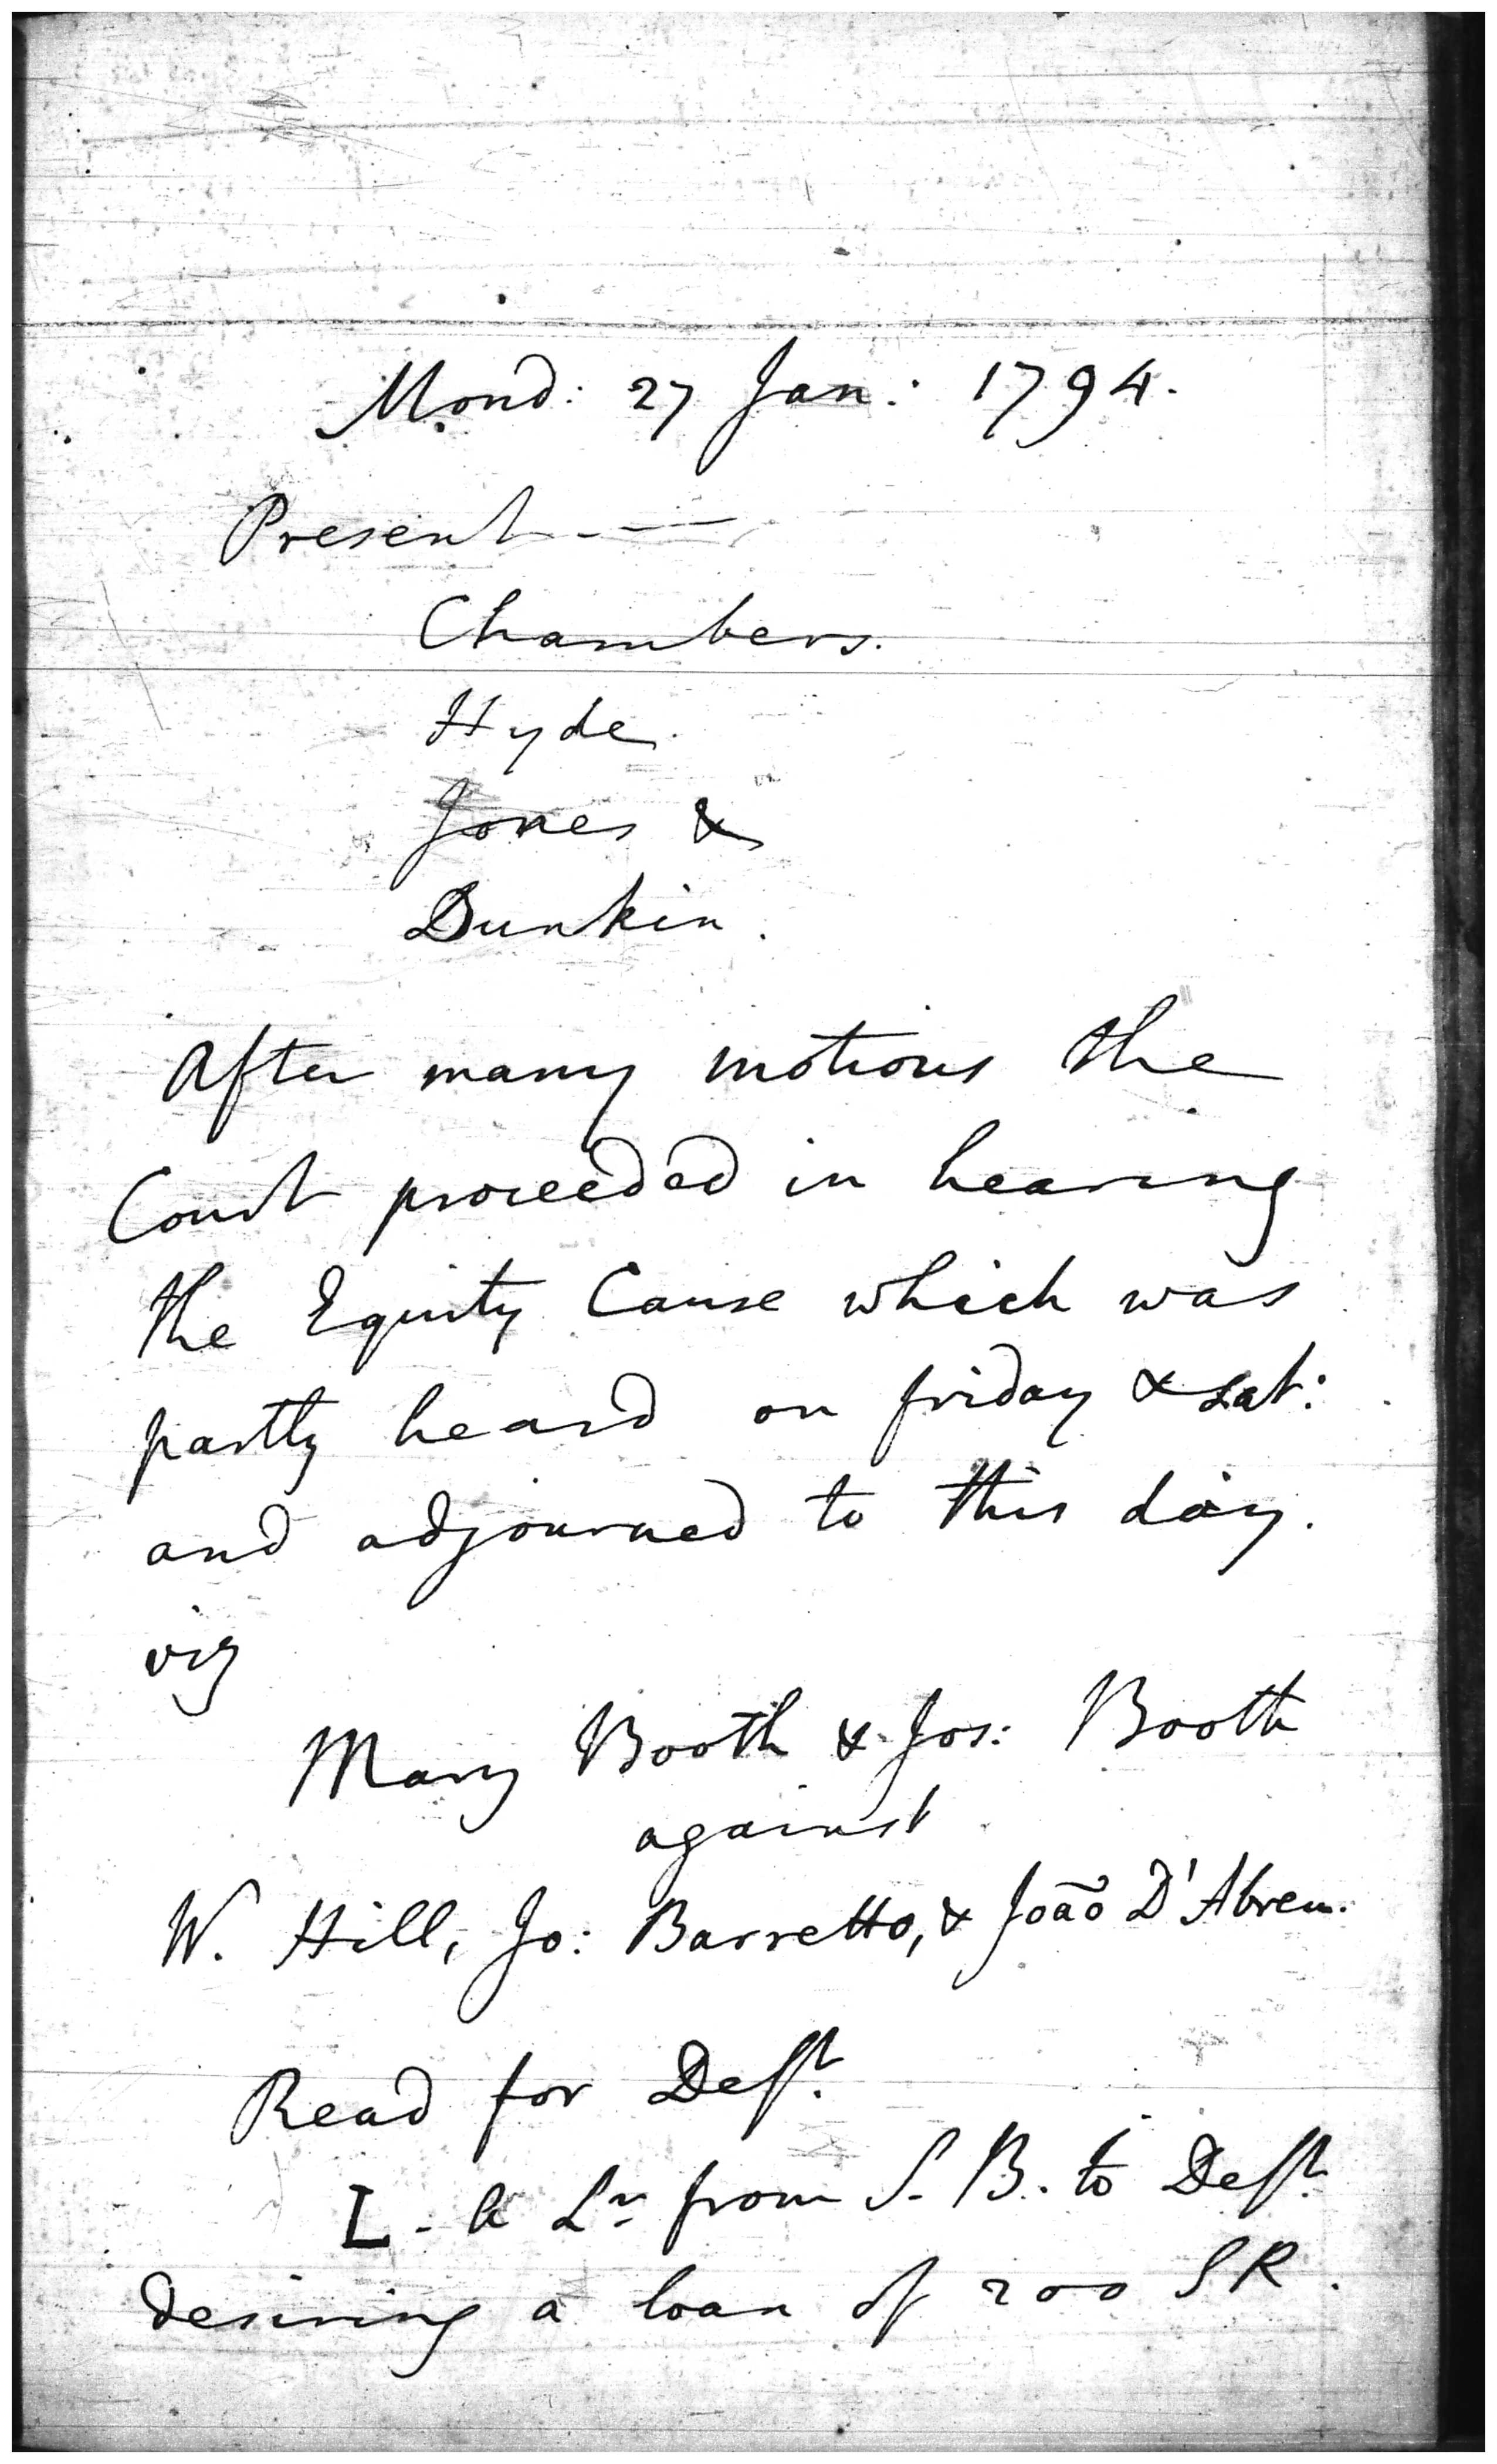 Mond: 27 Jan: 1794.
Present ---
Chambers.
Hyde.
Jones &
Dunkin.
After many motions the
Court proceeded in hearing
the Equity Cause which was
partly heard on friday & Sat:
and adjourned to this day.
viz
Mary Booth & Jos: Booth
against
W. Hill, Jo: Barretto, & João D'Abreu.
Read for Deft.
L - a Lr from S. B. to Deft.
desiring a loan of 200 SR.